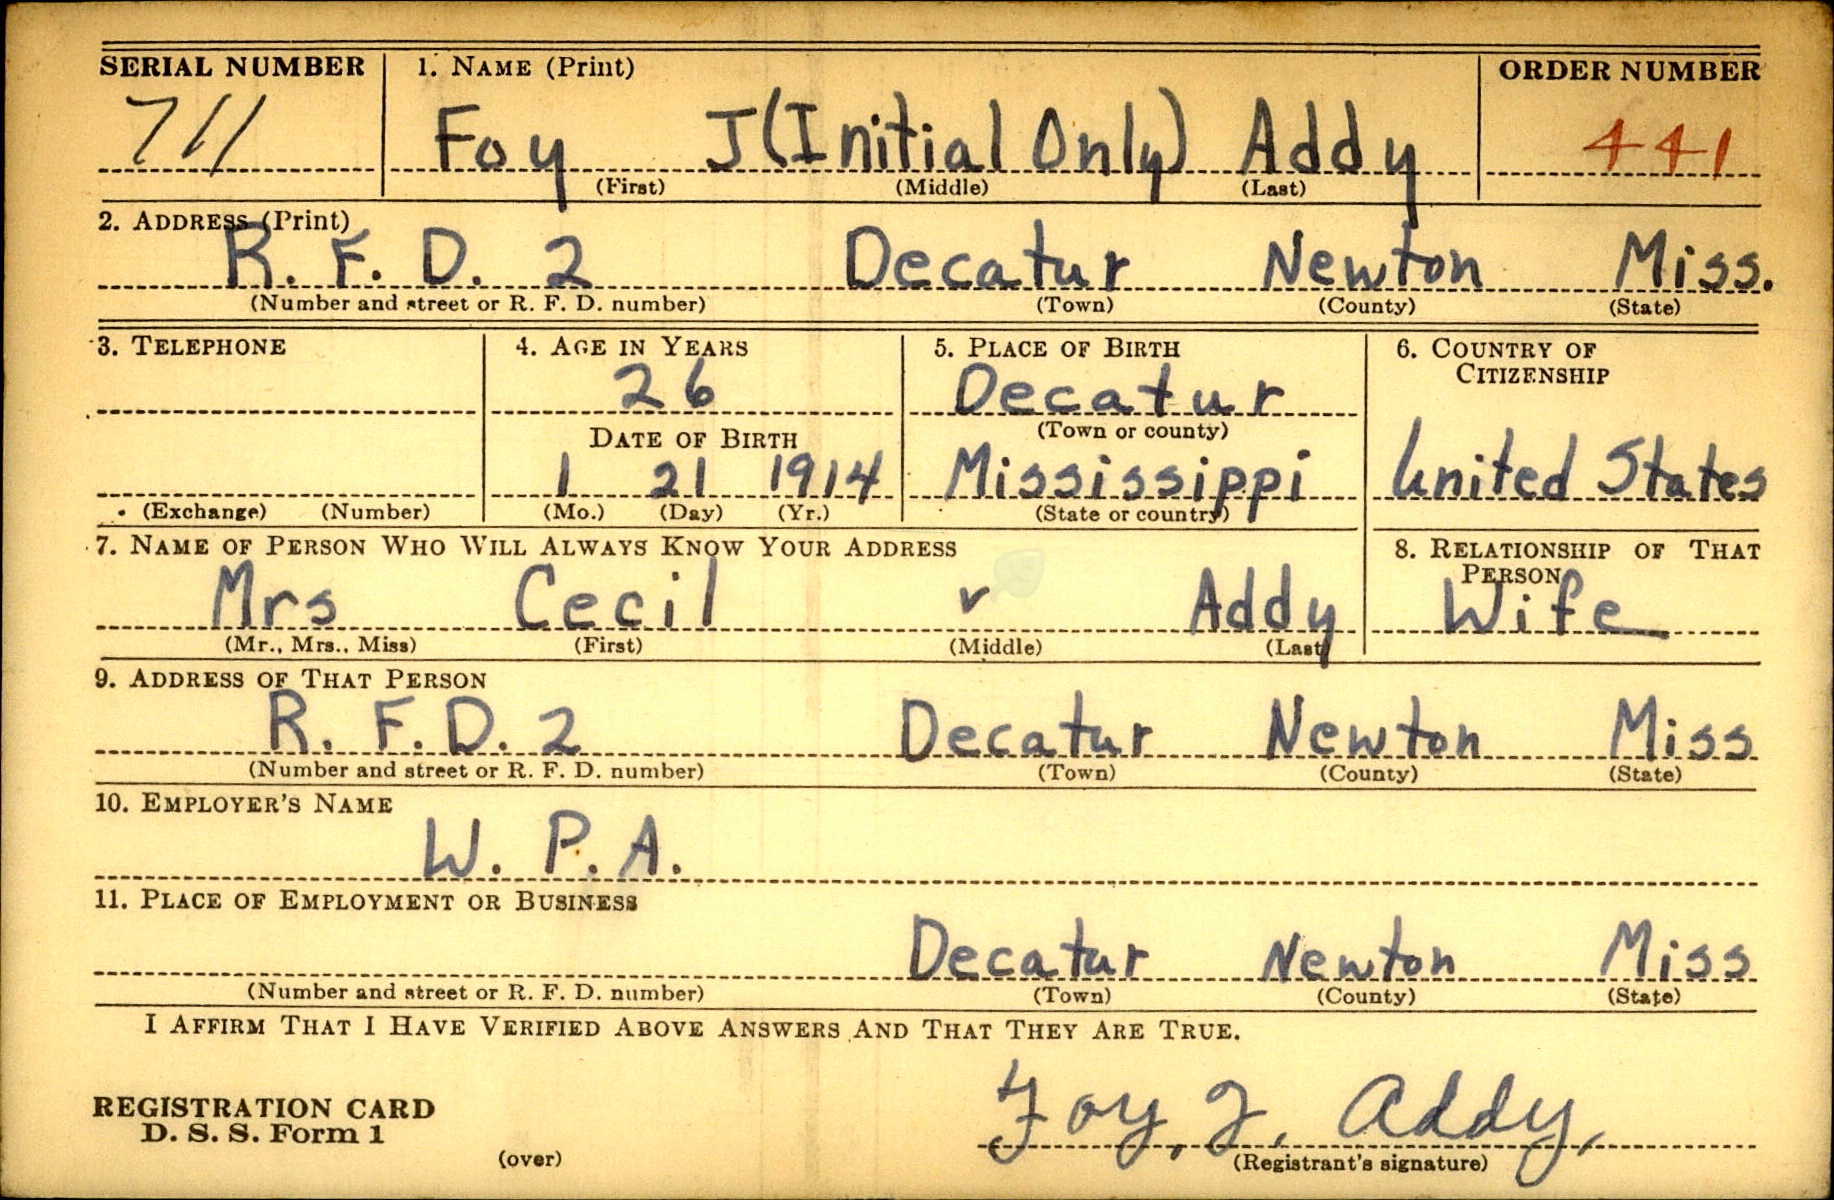 SERIAL NUMBER 1. NAME (Print) ORDER NUMBER
711 Foy J (Initial Only) Addy 441
(First) (Middle) (Last)
2. ADDRESS (Print)
R. F. D. 2 Decatur Newton Miss.
(Number and street or R. F. D. number) (Town) (County) (State)
3. TELEPHONE 4. AGE IN YEARS 5. PLACE OF BIRTH 6. COUNTRY OF
CITIZENSHIP
26 Decatur
DATE OF BIRTH (Town or county)
1 21 1914 Mississippi United States
(Exchange) (Number) (Mo.) (Day) (Yr.) (State or country)
7. NAME OF PERSON WHO WILL ALWAYS KNOW YOUR ADDRESS 8. RELATIONSHIP OF THAT
PERSON
Mrs Cecil v Addy Wife
(Mr., Mrs., Miss) (First) (Middle) (Last)
9. ADDRESS OF THAT PERSON
R. F. D. 2 Decatur Newton Miss
(Number and street or R. F. D. number) (Town) (County) (State)
10. EMPLOYER'S NAME
W. P. A.
11. PLACE OF EMPLOYMENT OR BUSINESS
Decatur Newton Miss
(Number and street or R. F. D. number) (Town) (County) (State)
I AFFIRM THAT I HAVE VERIFIED ABOVE ANSWERS AND THAT THEY ARE TRUE.
REGISTRATION CARD
D. S. S. Form 1 Foy, J, Addy,
(over) (Registrant's signature)